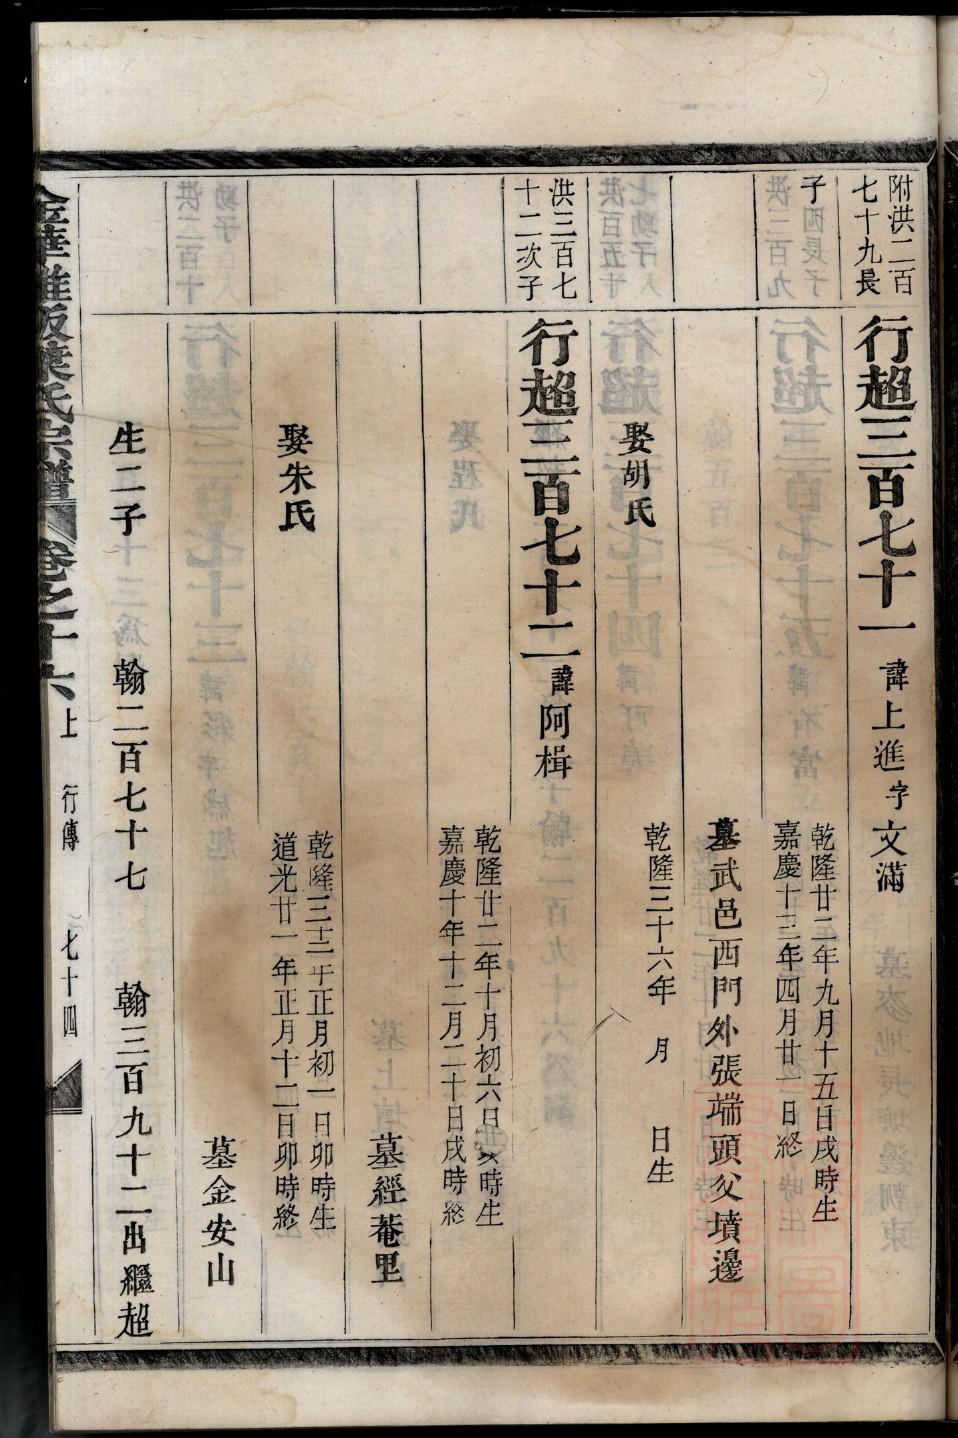 附洪二百
七十九長
子
行超三百七十一 諱上進字文滿
乾隆廿二年九月十五日戌時生
嘉慶十三年四月廿一日終
墓武邑西門外張端頭父墳邊
娶胡氏
乾隆三十六年 月 日生
洪三百七
十二次子
行超三百七十二 諱阿楫
乾隆廿二年十月初六日亥時生
嘉慶十年十二月二十日戌時終
墓經菴里
娶朱氏
乾隆三十二年正月初一日卯時生
道光廿一年正月十二日卯時終
墓金安山
生二子 翰二百七十七 翰三百九十二出繼超
金華 葉氏宗譜 卷之十六上 行傳 七十四